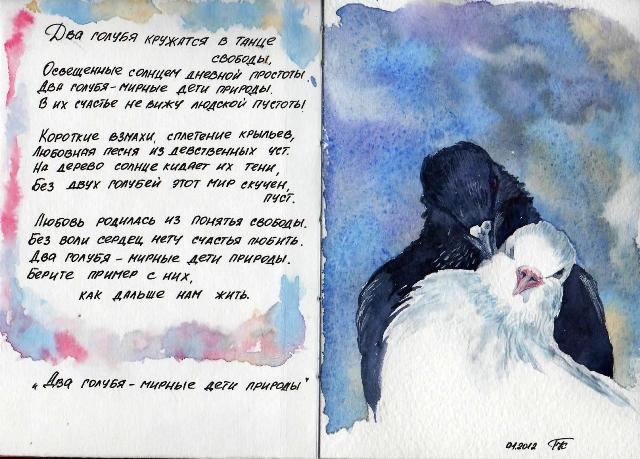 Два голубя кружатся в танце
свободы,
Освещенные солнцем дневной простоты.
Два голубя-мирные дети природы.
В их счастье не вижу людской пустоты!
Короткие взмахи, сплетение крыльев,
Любовная песня из девственных уст.
На дерево солнце кидает их тени,
Без двух голубей этот мир скучен,
пуст.
Любовь родилась из понятья свободы.
Без воли сердец нету счастья любить.
Два голубя - мирные дети природы.
Берите пример с них,
как дальше нам жить.
„Два голубя - мирные дети природы"
01.2012